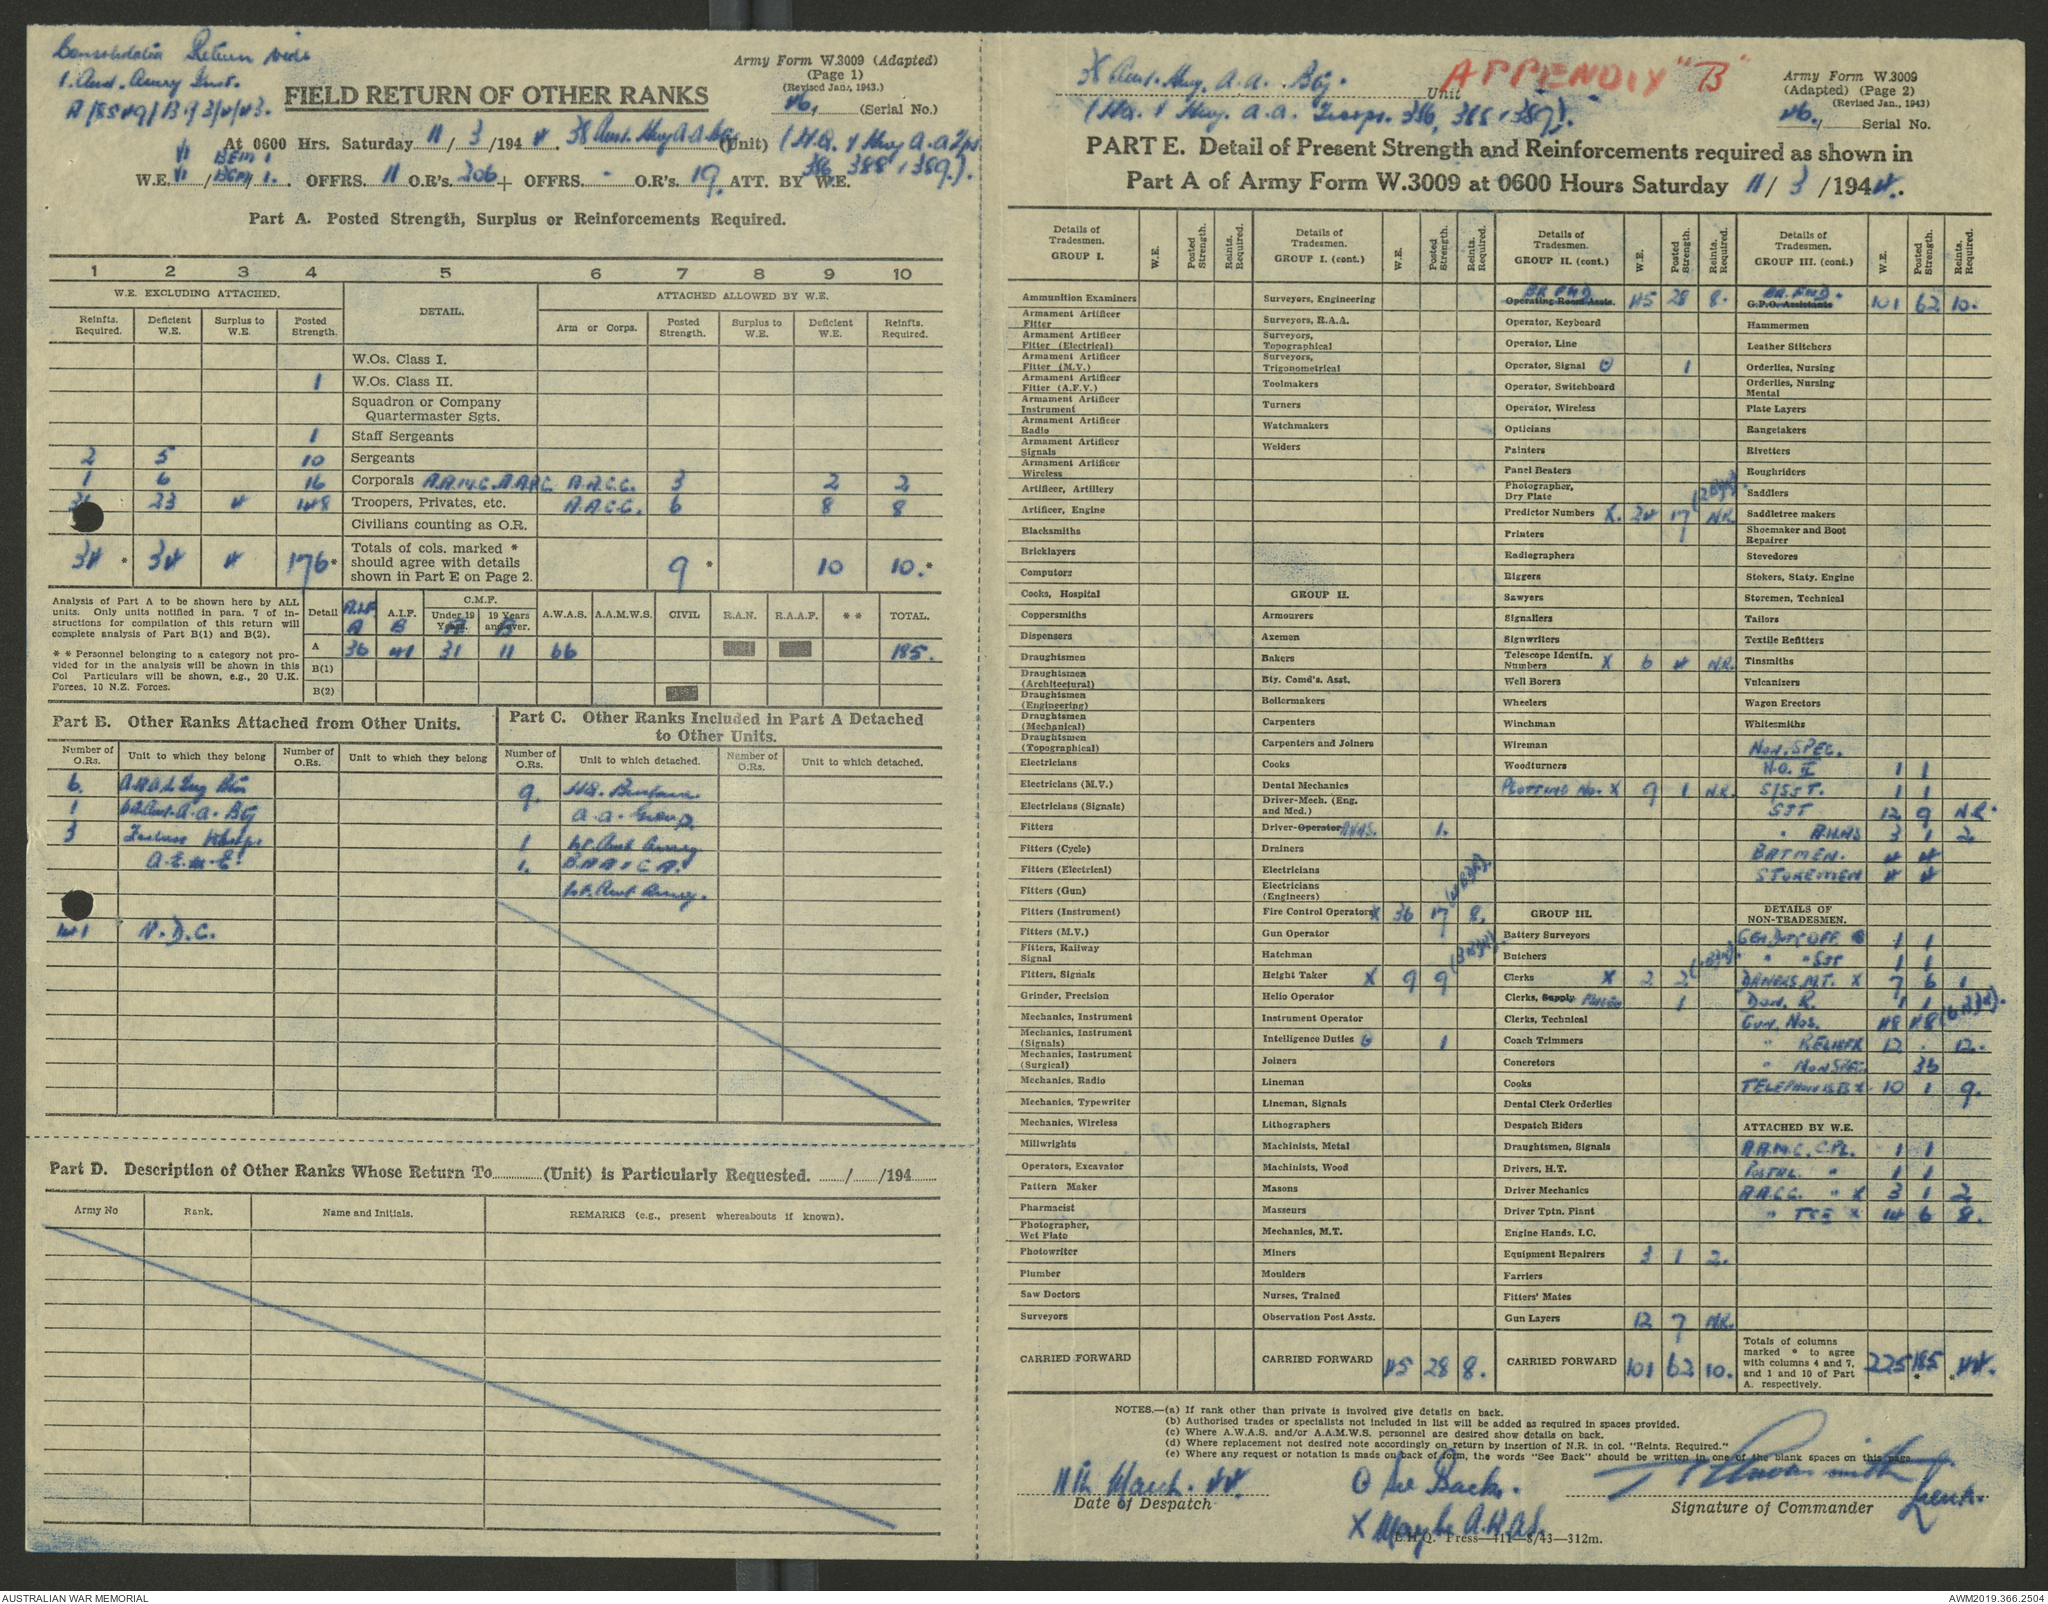 Consolidation Return vide
1. Aust. Army Inst.
A/8549/B1/3/4/43.
FIELD RETURN OF OTHER RANKS
Army Form W.3009 (Adapted)
(Page 1)
(Revised Jan., 1943.)
46, (Serial No.)
At 0600 Hrs. Saturday 11/3/1944. 38 Aust. Hvy A.A. Bty (Unit) (H.Q. & Hvy A.A. Tps.
386, 388, 389.).
W.E. VI / BEM 1 / 1. OFFRS. 11 O.R's. 206 + OFFRS. - O.R's. 19. ATT. BY W.E.
Part A. Posted Strength, Surplus or Reinforcements Required.
1 2 3 4 5 6 7 8 9 10
W.E. EXCLUDING ATTACHED. DETAIL. ATTACHED ALLOWED BY W.E.
Reinfts. Required. Deficient W.E. Surplus to W.E. Posted Strength. Arm or Corps. Posted Strength. Surplus to W.E. Deficient W.E. Reinfts. Required.
W.Os. Class I.
1 W.Os. Class II.
Squadron or Company Quartermaster Sgts.
1 Staff Sergeants
2 5 10 Sergeants
1 6 16 Corporals A.A.M.C. A.A.P.C. A.A.C.C. 3 2 2
31 23 4 148 Troopers, Privates, etc. A.A.C.C. 6 8 8
Civilians counting as O.R.
34 * 34 4 176 * Totals of cols. marked * should agree with details shown in Part E on Page 2. 9 * 10 10. *
Analysis of Part A to be shown here by ALL units. Only units notified in para. 7 of instructions for compilation of this return will complete analysis of Part B(1) and B(2).
* * Personnel belonging to a category not provided for in the analysis will be shown in this Col Particulars will be shown, e.g., 20 U.K. Forces, 10 N.Z. Forces.
Detail A.I.F. A A.I.F. B C.M.F. Under 19 Years. A 19 Years and over. B A.W.A.S. A.A.M.W.S. CIVIL R.A.N. R.A.A.F. * * TOTAL.
A 36 41 31 11 66 185.
B(1)
B(2)
Part B. Other Ranks Attached from Other Units.
Number of O.Rs. Unit to which they belong Number of O.Rs. Unit to which they belong
6.
1 Aust. A.A. Bty
3
A.E.M.E.
41 V.D.C.
Part C. Other Ranks Included in Part A Detached to Other Units.
Number of O.Rs. Unit to which detached. Number of O.Rs. Unit to which detached.
9. HQ.
A.A. Group.
1 1st. Aust Army
1.
1st. Aust Army.
Part D. Description of Other Ranks Whose Return To (Unit) is Particularly Requested. / /194
Army No Rank. Name and Initials. REMARKS (e.g., present whereabouts if known).
38 Aust. Hvy. A.A. Bty. Unit
APPENDIX "B"
(HQ. & Hvy. A.A. Troops. 386, 388, 389.).
Army Form W.3009
(Adapted) (Page 2)
(Revised Jan., 1943)
46./ Serial No.
PART E. Detail of Present Strength and Reinforcements required as shown in
Part A of Army Form W.3009 at 0600 Hours Saturday 11/3/1944.
Details of Tradesmen. GROUP I. W.E. Posted Strength. Reints. Required.
Ammunition Examiners
Armament Artificer Fitter
Armament Artificer Fitter (Electrical)
Armament Artificer Fitter (M.V.)
Armament Artificer Fitter (A.F.V.)
Armament Artificer Instrument
Armament Artificer Radio
Armament Artificer Signals
Armament Artificer Wireless
Artificer, Artillery
Artificer, Engine
Blacksmiths
Bricklayers
Computors
Cooks, Hospital
Coppersmiths
Dispensers
Draughtsmen
Draughtsmen (Architectural)
Draughtsmen (Engineering)
Draughtsmen (Mechanical)
Draughtsmen (Topographical)
Electricians
Electricians (M.V.)
Electricians (Signals)
Fitters
Fitters (Cycle)
Fitters (Electrical)
Fitters (Gun)
Fitters (Instrument)
Fitters (M.V.)
Fitters, Railway Signal
Fitters, Signals
Grinder, Precision
Mechanics, Instrument
Mechanics, Instrument (Signals)
Mechanics, Instrument (Surgical)
Mechanics, Radio
Mechanics, Typewriter
Mechanics, Wireless
Millwrights
Operators, Excavator
Pattern Maker
Pharmacist
Photographer, Wet Plate
Photowriter
Plumber
Saw Doctors
Surveyors
CARRIED FORWARD
Details of Tradesmen. GROUP I. (cont.) W.E. Posted Strength. Reints. Required.
Surveyors, Engineering
Surveyors, R.A.A.
Surveyors, Topographical
Surveyors, Trigonometrical
Toolmakers
Turners
Watchmakers
Welders
GROUP II.
Armourers
Axemen
Bakers
Bty. Comd's. Asst.
Boilermakers
Carpenters
Carpenters and Joiners
Cooks
Dental Mechanics
Driver-Mech. (Eng. and Med.)
Driver-Operator AWAS. 1.
Drainers
Electricians
Electricians (Engineers)
Fire Control Operators X 36 17 8.
Gun Operator
Hatchman
Height Taker X 9 9
Helio Operator
Instrument Operator
Intelligence Duties 1
Joiners
Lineman
Lineman, Signals
Lithographers
Machinists, Metal
Machinists, Wood
Masons
Masseurs
Mechanics, M.T.
Miners
Moulders
Nurses, Trained
Observation Post Assts.
CARRIED FORWARD 45 28 8.
Details of Tradesmen. GROUP II. (cont.) W.E. Posted Strength. Reints. Required.
BR FWD Operating Room Assts. 45 28 8.
Operator, Keyboard
Operator, Line
Operator, Signal 1
Operator, Switchboard
Operator, Wireless
Opticians
Painters
Panel Beaters
Photographer, Dry Plate
Predictor Numbers X. 24 17 N.R.
Printers
Radiographers
Riggers
Sawyers
Signallers
Signwriters
Telescope Identfn. Numbers X 6 4 N.R.
Well Borers
Wheelers
Winchman
Wireman
Woodturners
PLOTTING No. X 9 1 N.R.
GROUP III.
Battery Surveyors
Butchers
Clerks X 2 2
Clerks, Supply 1
Clerks, Technical
Coach Trimmers
Concretors
Cooks
Dental Clerk Orderlies
Despatch Riders
Draughtsmen, Signals
Drivers, H.T.
Driver Mechanics
Driver Tptn. Plant
Engine Hands, I.C.
Equipment Repairers 3 1 2.
Farriers
Fitters' Mates
Gun Layers 12 7 N.R.
CARRIED FORWARD 101 62 10.
Details of Tradesmen. GROUP III. (cont.) W.E. Posted Strength. Reints. Required.
BR. FWD. G.P.O. Assistants 101 62 10.
Hammermen
Leather Stitchers
Orderlies, Nursing
Orderlies, Nursing Mental
Plate Layers
Rangetakers
Rivetters
Roughriders
Saddlers
Saddletree makers
Shoemaker and Boot Repairer
Stevedores
Stokers, Staty. Engine
Storemen, Technical
Tailors
Textile Refitters
Tinsmiths
Vulcanizers
Wagon Erectors
Whitesmiths
NON. SPEC.
W.O. II 1 1
S/SGT. 1 1
SGT 12 9 N.R.
" AWAS 3 1 2
BATMEN. 4 4
STOREMEN 4 4
DETAILS OF NON-TRADESMEN.
1 1
" " SGT 1 1
DRIVERS M.T. X 7 6 1
DON. R. 1 1
GUN. NOS. 48 48
" RELIEFS 12 . 12.
" NON SPEC. 36
TELEPHONISTS X. 10 1 9.
ATTACHED BY W.E.
A.A.M.C. CPL. 1 1
POSTAL " 1 1
A.A.C.C. " X 3 1 2
" TCE X 14 6 8.
Totals of columns marked * to agree with columns 4 and 7, and 1 and 10 of Part A. respectively. 225 185 * * 44.
NOTES.—(a) If rank other than private is involved give details on back.
(b) Authorised trades or specialists not included in list will be added as required in spaces provided.
(c) Where A.W.A.S. and/or A.A.M.W.S. personnel are desired show details on back.
(d) Where replacement not desired note accordingly on return by insertion of N.R. in col. "Reints. Required."
(e) Where any request or notation is made on back of form, the words "See Back" should be written in one of the blank spaces on this page.
11th March. 44.
Date of Despatch
See Back.
X Maybe A.W.A.S.
Lieut.
Signature of Commander
L.H.Q. Press—411—8/43—312m.
AUSTRALIAN WAR MEMORIAL
AWM2019.366.2504